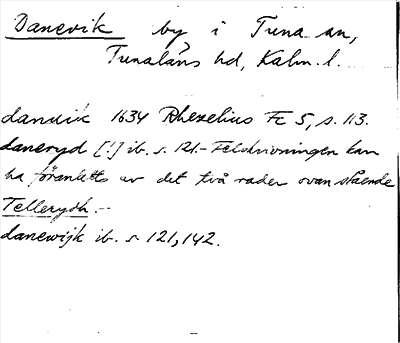 Danevik by i Tuna sn,
Tunaläns hd, Kalm. l.
danuik 1634 Rhezelius Fc 5, s. 113.
daneryd [!] ib. s. 121.- Feldrivningen kan
ha föranletts av det två rader ovan stående
Tellerydh.-
danewijk ib. s. 121, 142.